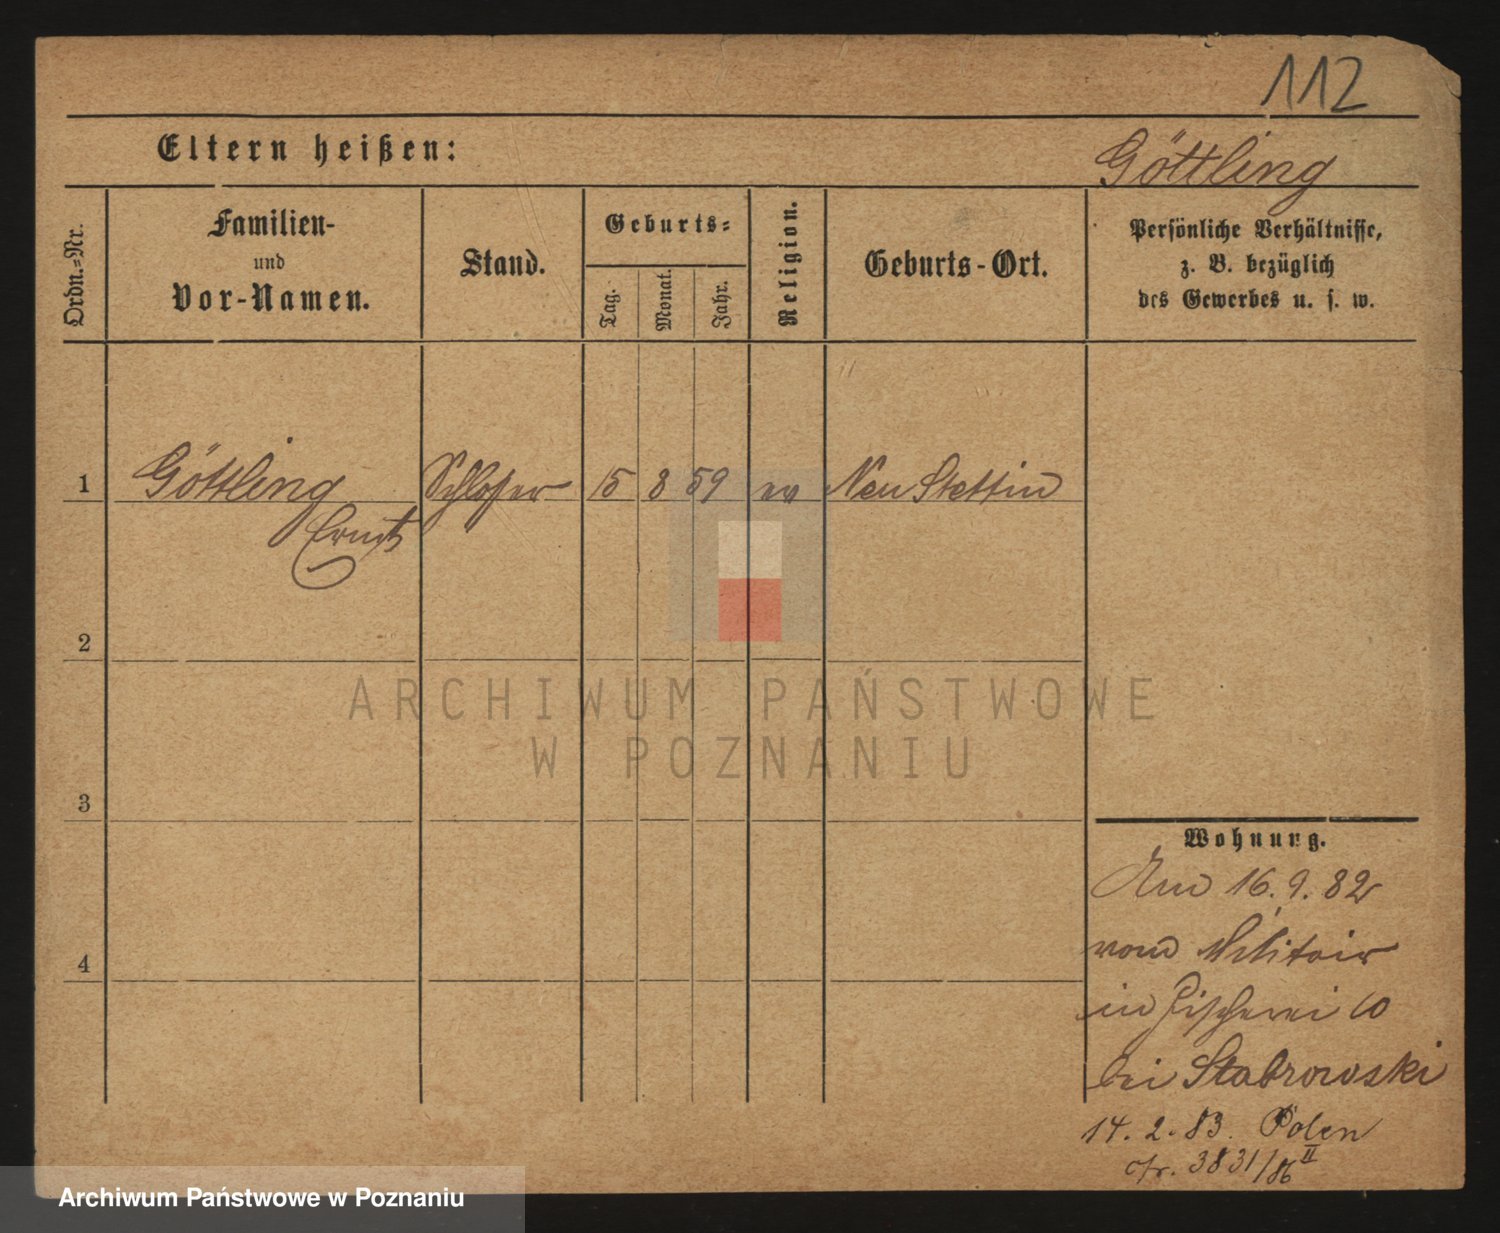 112
Eltern heißen:
Göttling
Ordn.=Nr.
Familien-
und
Vor-Namen.
Stand.
Geburts=
Tag.
Monat.
Jahr.
Religion.
Geburts-Ort.
Persönliche Verhältnisse,
z. B. bezüglich
des Gewerbes u. s. w.
1 Göttling Schlosser 15 8 59 ev Neu Stettin
Ernst
2
3
4
ARCHIWUM PAŃSTWOWE
W POZNANIU
Wohnung.
16. 9. 82
vom Militair
in Fischerei 10
bei Stabrowski
14. 2. 83. Polen
3831/86 II
Archiwum Państwowe w Poznaniu